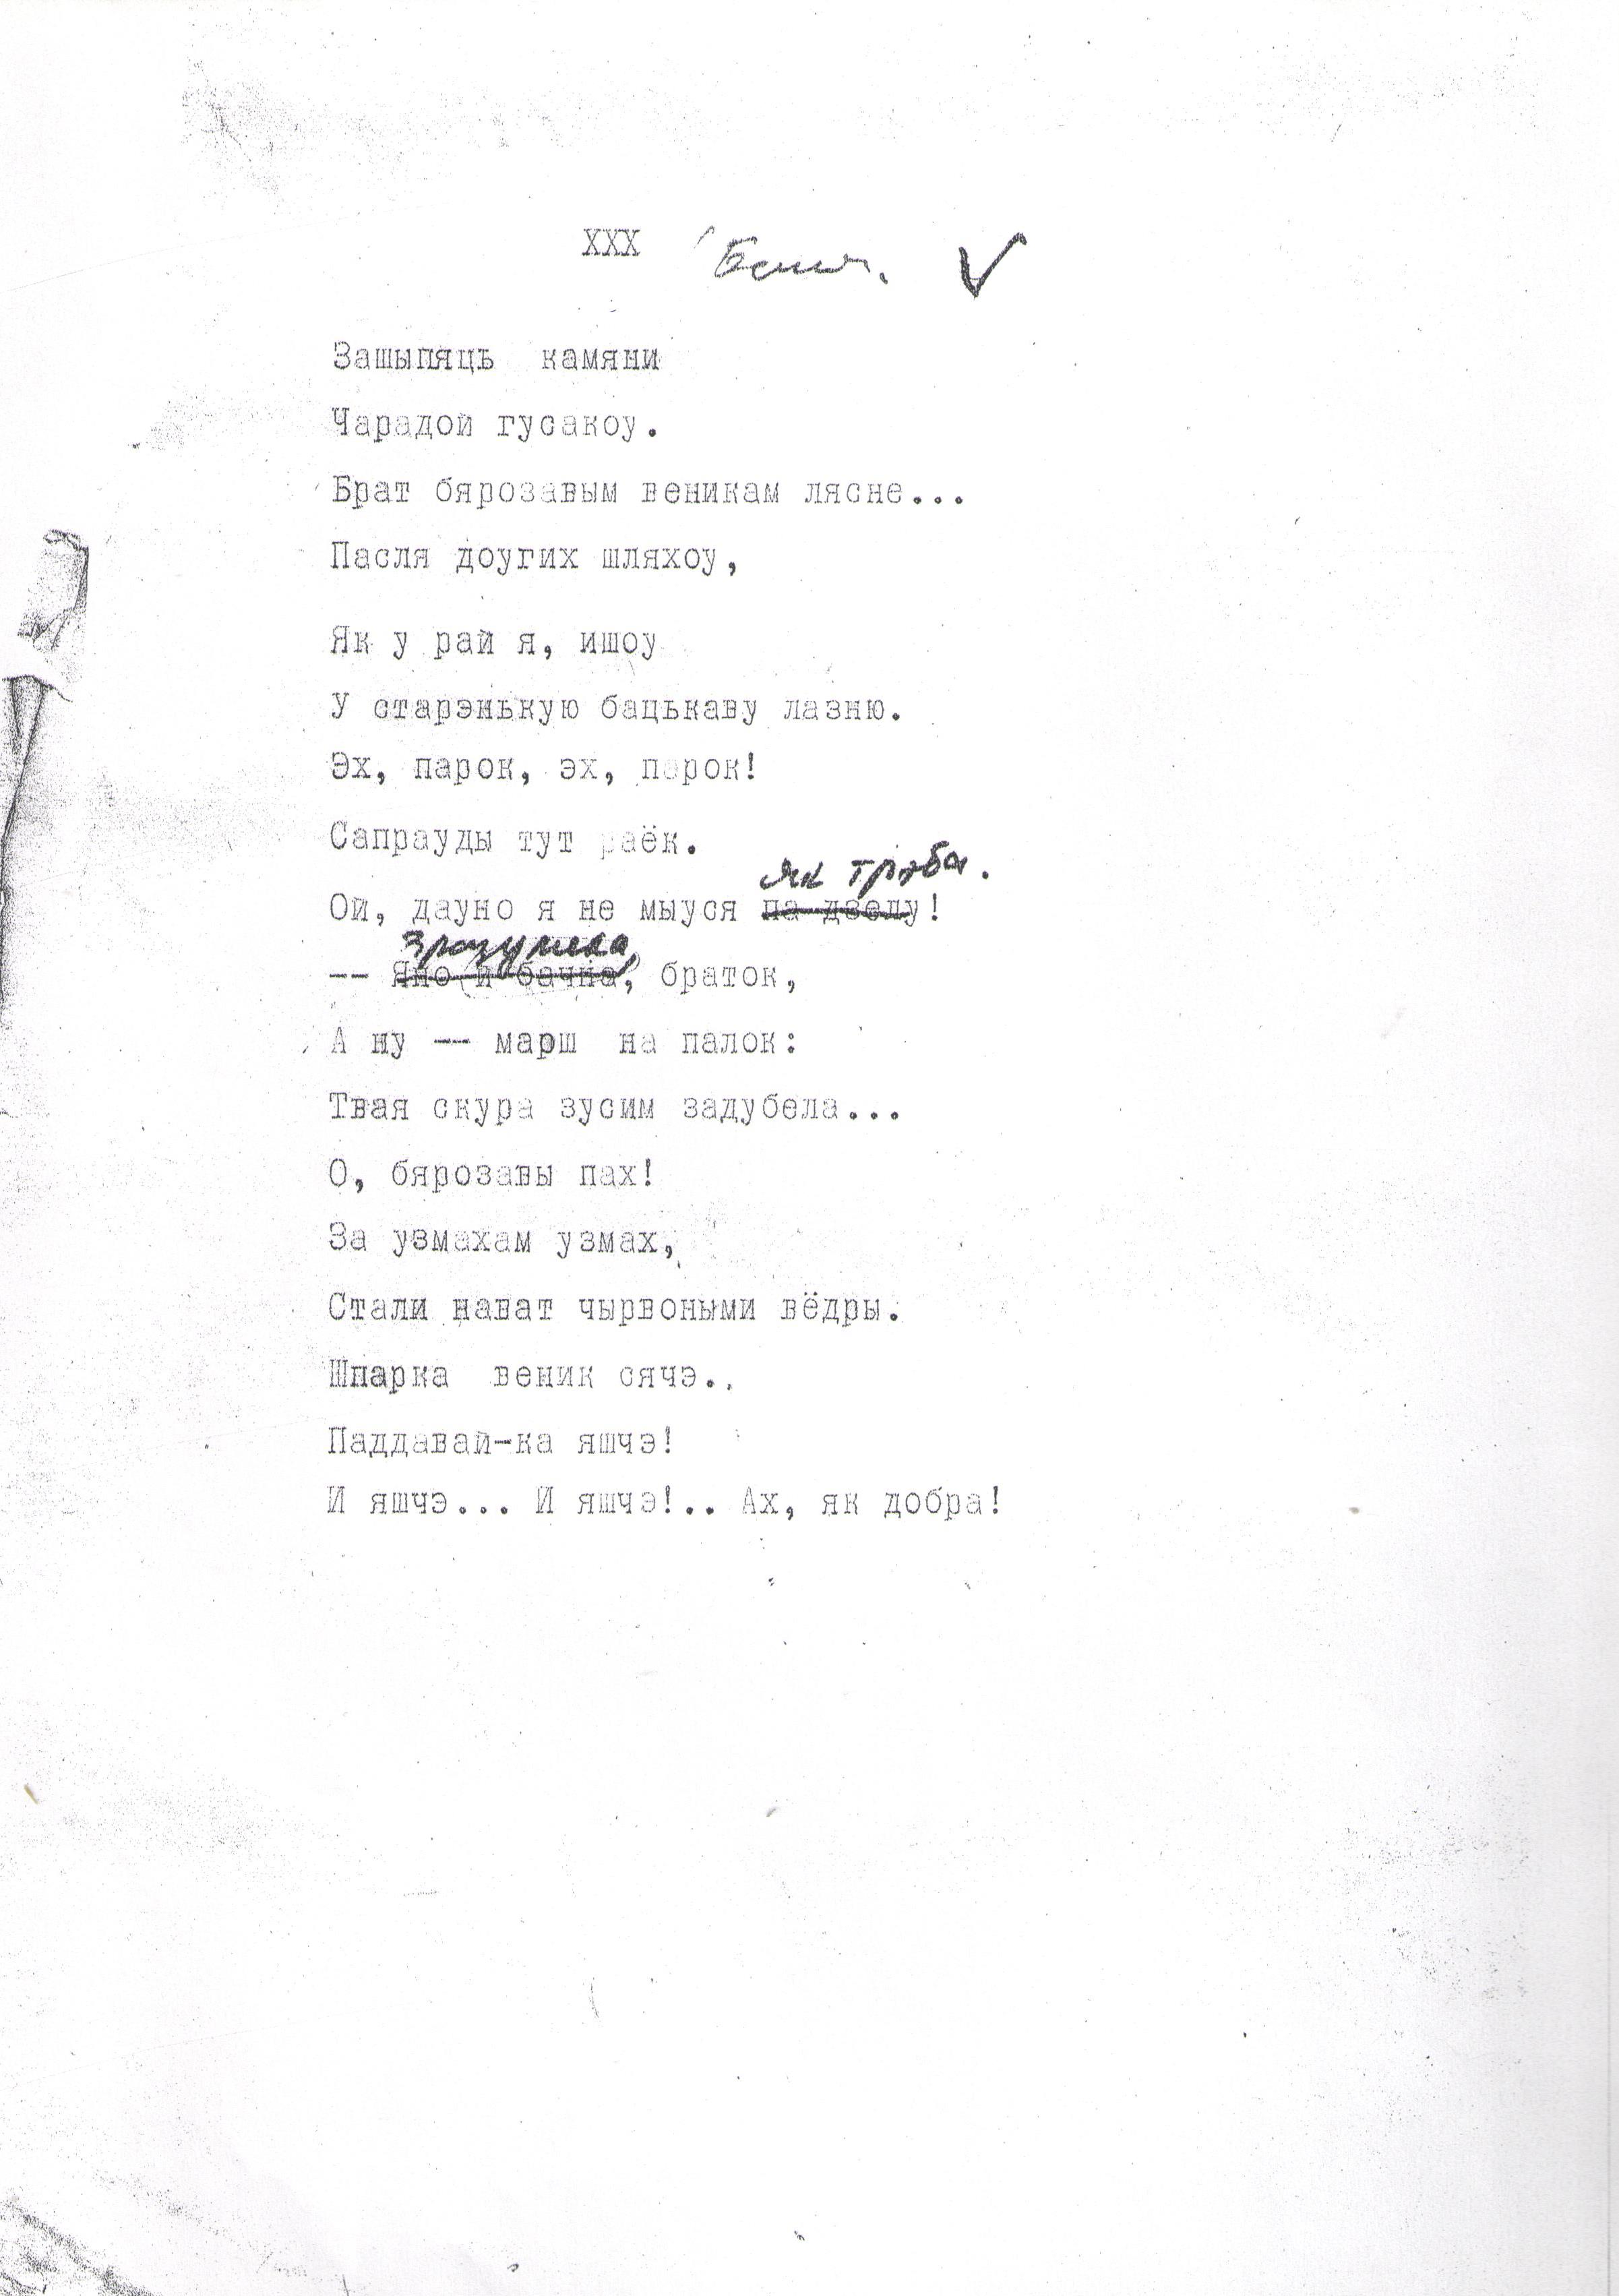 XXX
Зашыпяць камяни
Чарадой гусакоу.
Брат бярозавым веникам лясне...
Пасля доугих шляхоу,
Як у рай я, ишоу
У старэнькую бацькаву лазню.
Эх, парок, эх, парок!
Сапрауды тут раёк.
як трэба.
Ой, дауно я не мыуся па дзелу!
зразумела,
-- Яно и бачна, браток,
А ну -- марш на палок:
Твая скура зусим задубела...
О, бярозавы пах!
За узмахам узмах,
Стали нават чырвоными вёдры.
Шпарка веник сячэ..
Паддавай-ка яшчэ!
И яшчэ... И яшчэ!.. Ах, як добра!